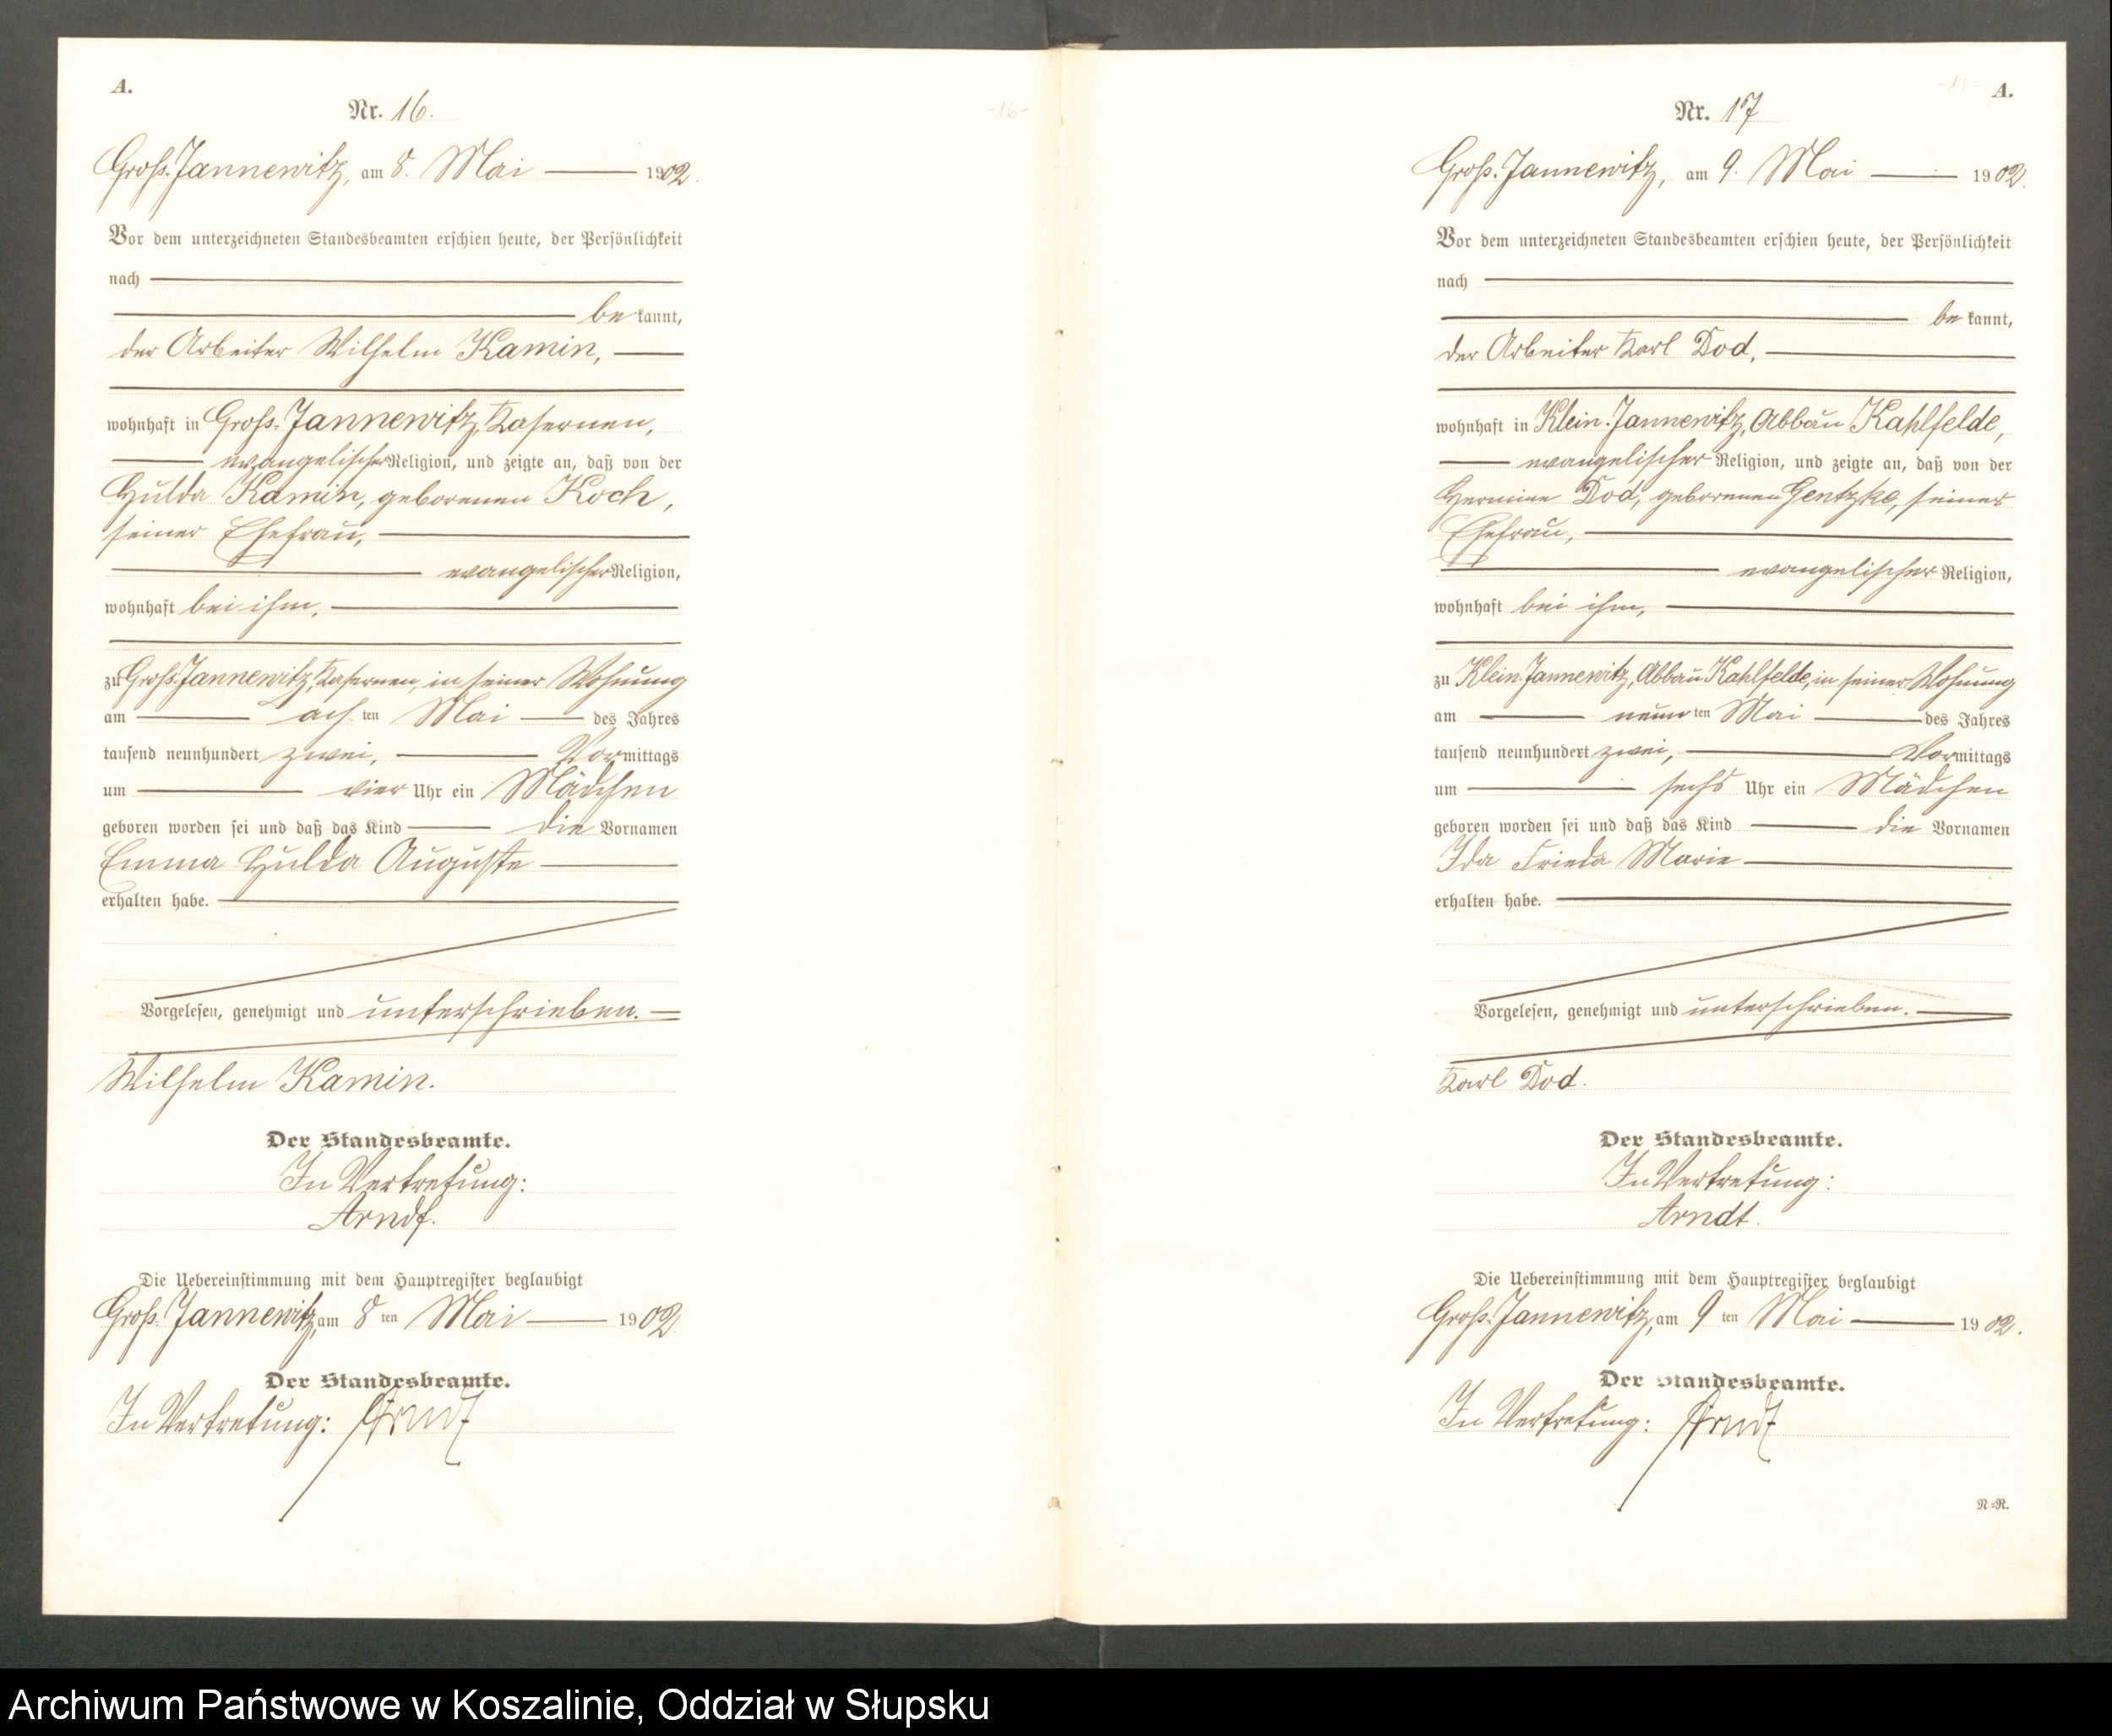 A.
Nr. 16.
Groß-Jannewitz, am 8. Mai 1902.
Vor dem unterzeichneten Standesbeamten erschien heute, der Persönlichkeit
nach
be kannt,
der Arbeiter Wilhelm Kamin,
wohnhaft in Groß-Jannewitz, Kasernen,
evangelischer Religion, und zeigte an, daß von der
Hulda Kamin, geborenen Koch,
seiner Ehefrau,
evangelischer Religion,
wohnhaft bei ihm,
zu Groß-Jannewitz, Kasernen, in seiner Wohnung
am ach ten Mai des Jahres
tausend neunhundert zwei, Vormittags
um vier Uhr ein Mädchen
geboren worden sei und daß das Kind die Vornamen
Emma Hulda Auguste
erhalten habe.
Vorgelesen, genehmigt und unterschrieben.
Wilhelm Kamin.
Der Standesbeamte.
In Vertretung:
Arndt.
Die Uebereinstimmung mit dem Hauptregister beglaubigt
Groß-Jannewitz, am 8 ten Mai 1902.
Der Standesbeamte.
In Vertretung: Arndt
-16-
A.
Nr. 17
Groß-Jannewitz, am 9. Mai 1902.
Vor dem unterzeichneten Standesbeamten erschien heute, der Persönlichkeit
nach
be kannt,
der Arbeiter Karl Dod,
wohnhaft in Klein-Jannewitz, Abbau Kahlfelde,
evangelischer Religion, und zeigte an, daß von der
Hermine Dod, geborenen Gentzke, seiner
Ehefrau,
evangelischer Religion,
wohnhaft bei ihm,
zu Klein-Jannewitz, Abbau Kahlfelde, in seiner Wohnung
am neun ten Mai des Jahres
tausend neunhundert zwei, Vormittags
um sechs Uhr ein Mädchen
geboren worden sei und daß das Kind die Vornamen
Ida Frieda Marie
erhalten habe.
Vorgelesen, genehmigt und unterschrieben.
Karl Dod.
Der Standesbeamte.
In Vertretung:
Arndt.
Die Uebereinstimmung mit dem Hauptregister beglaubigt
Groß-Jannewitz, am 9 ten Mai 1902.
Der Standesbeamte.
In Vertretung: Arndt
N=R.
Archiwum Państwowe w Koszalinie, Oddział w Słupsku